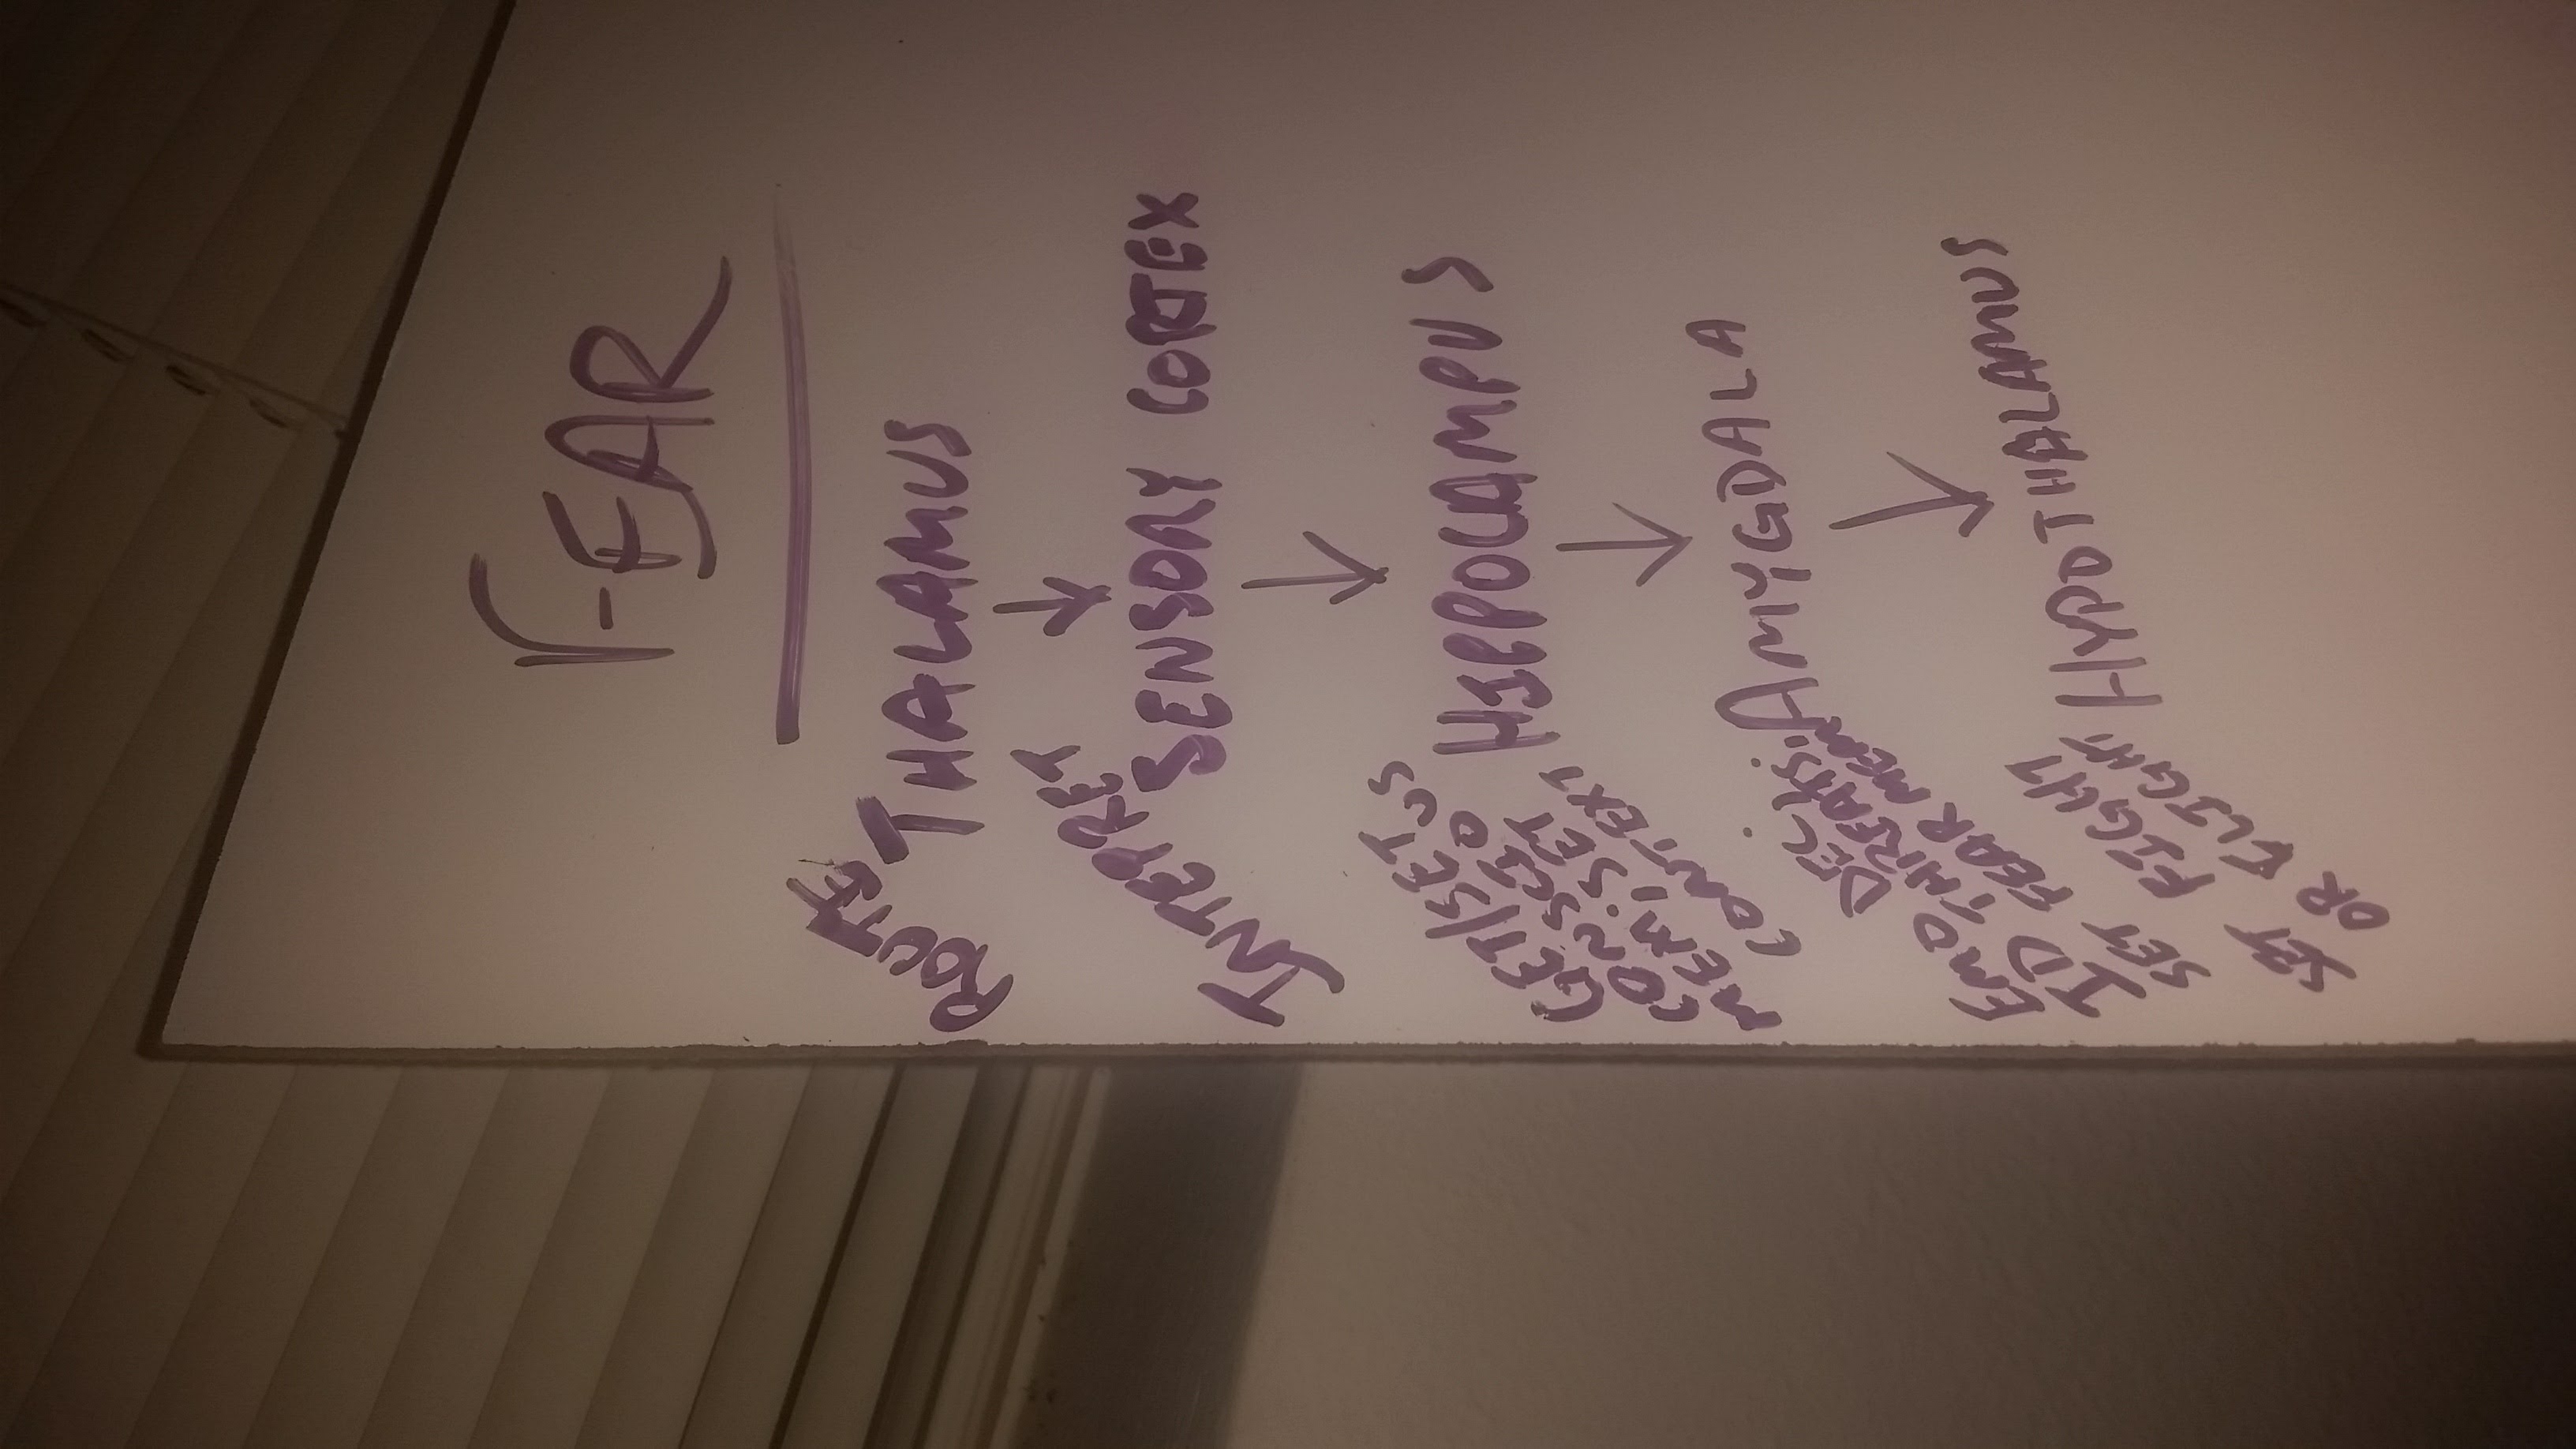 FEAR
ROUTE
THALAMUS
INTEPRET
SENSORY CORTEX
GET/SET
CONSCIOUS
MEM; SET
CONTEXT
HIPPOCAMPUS
EMO DEC;
ID THREATS;
SET FEAR MEM
AMYGDALA
SET FIGHT
OR FLIGHT
HYPOTHALAMUS